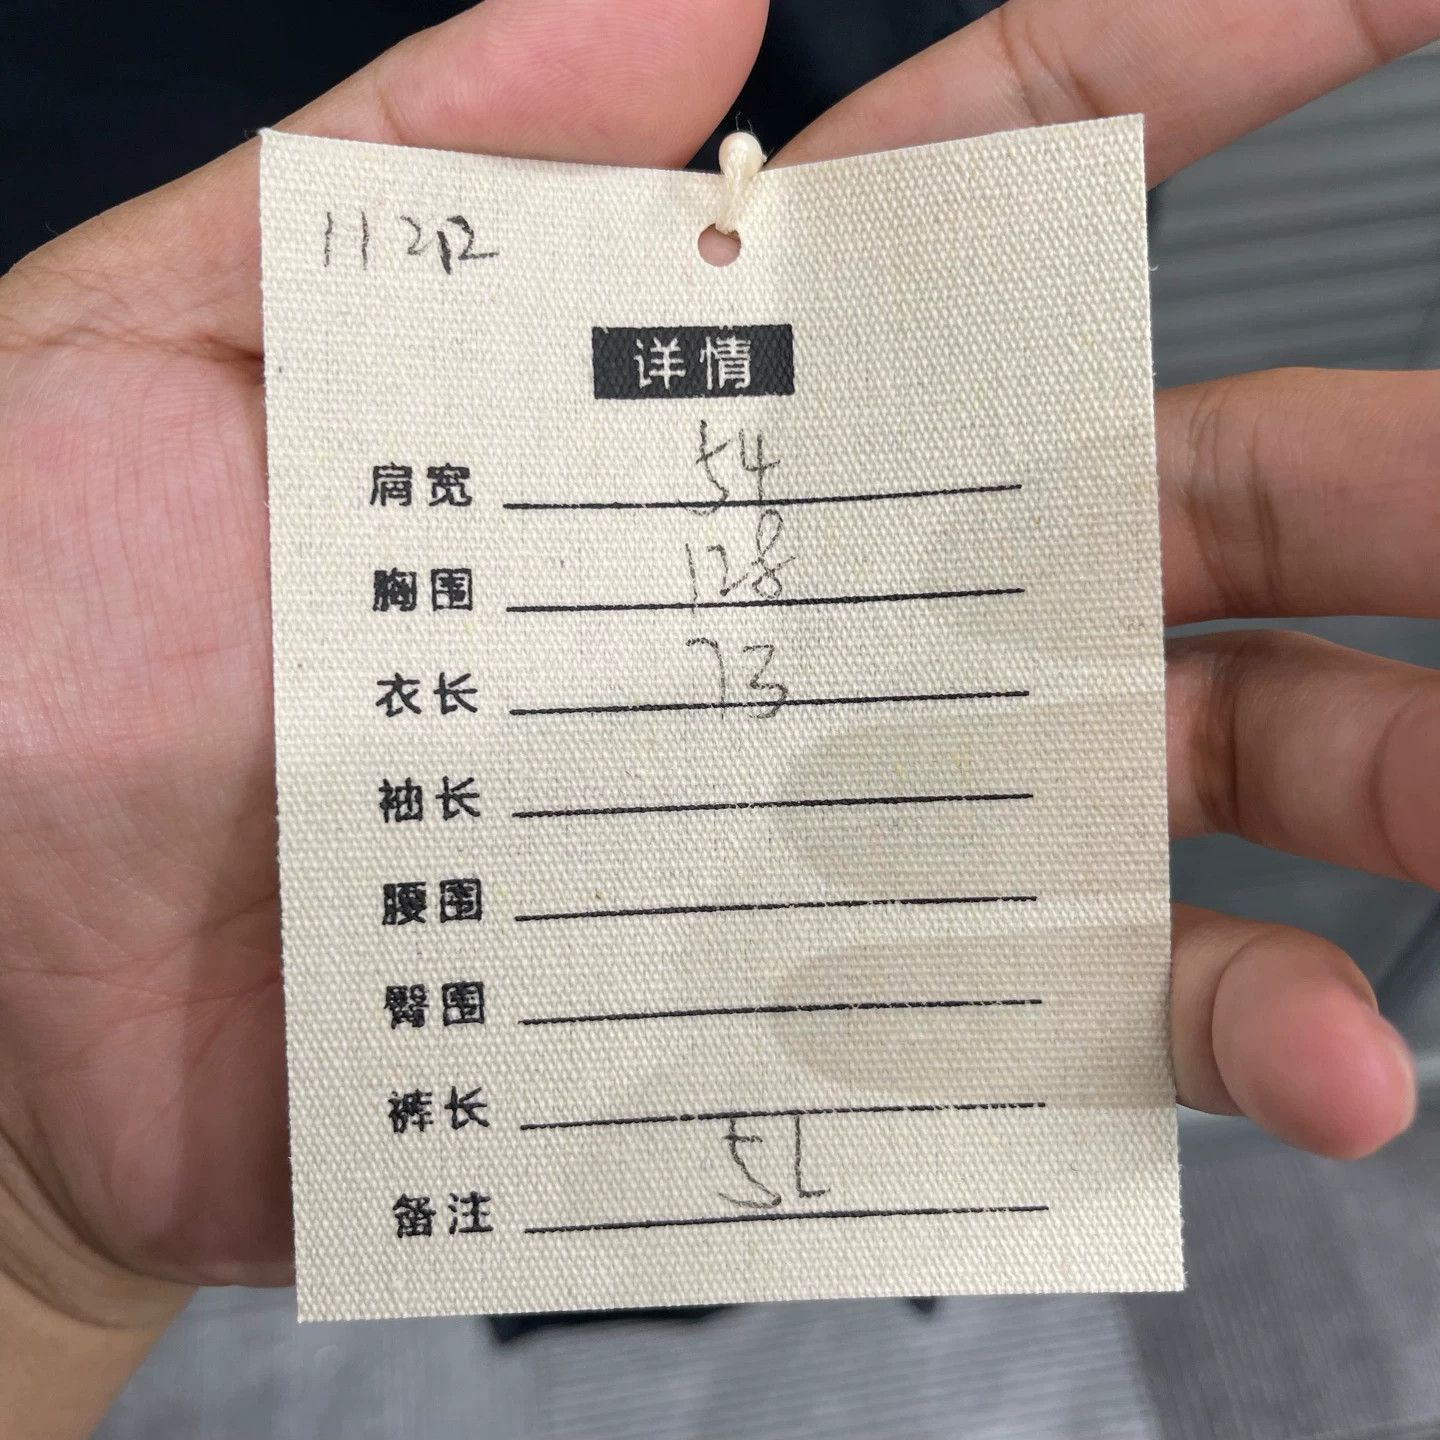 11212
详情
肩宽 54
胸围 128
衣长 73
袖长
腰围
臀围
裤长
备注 5L